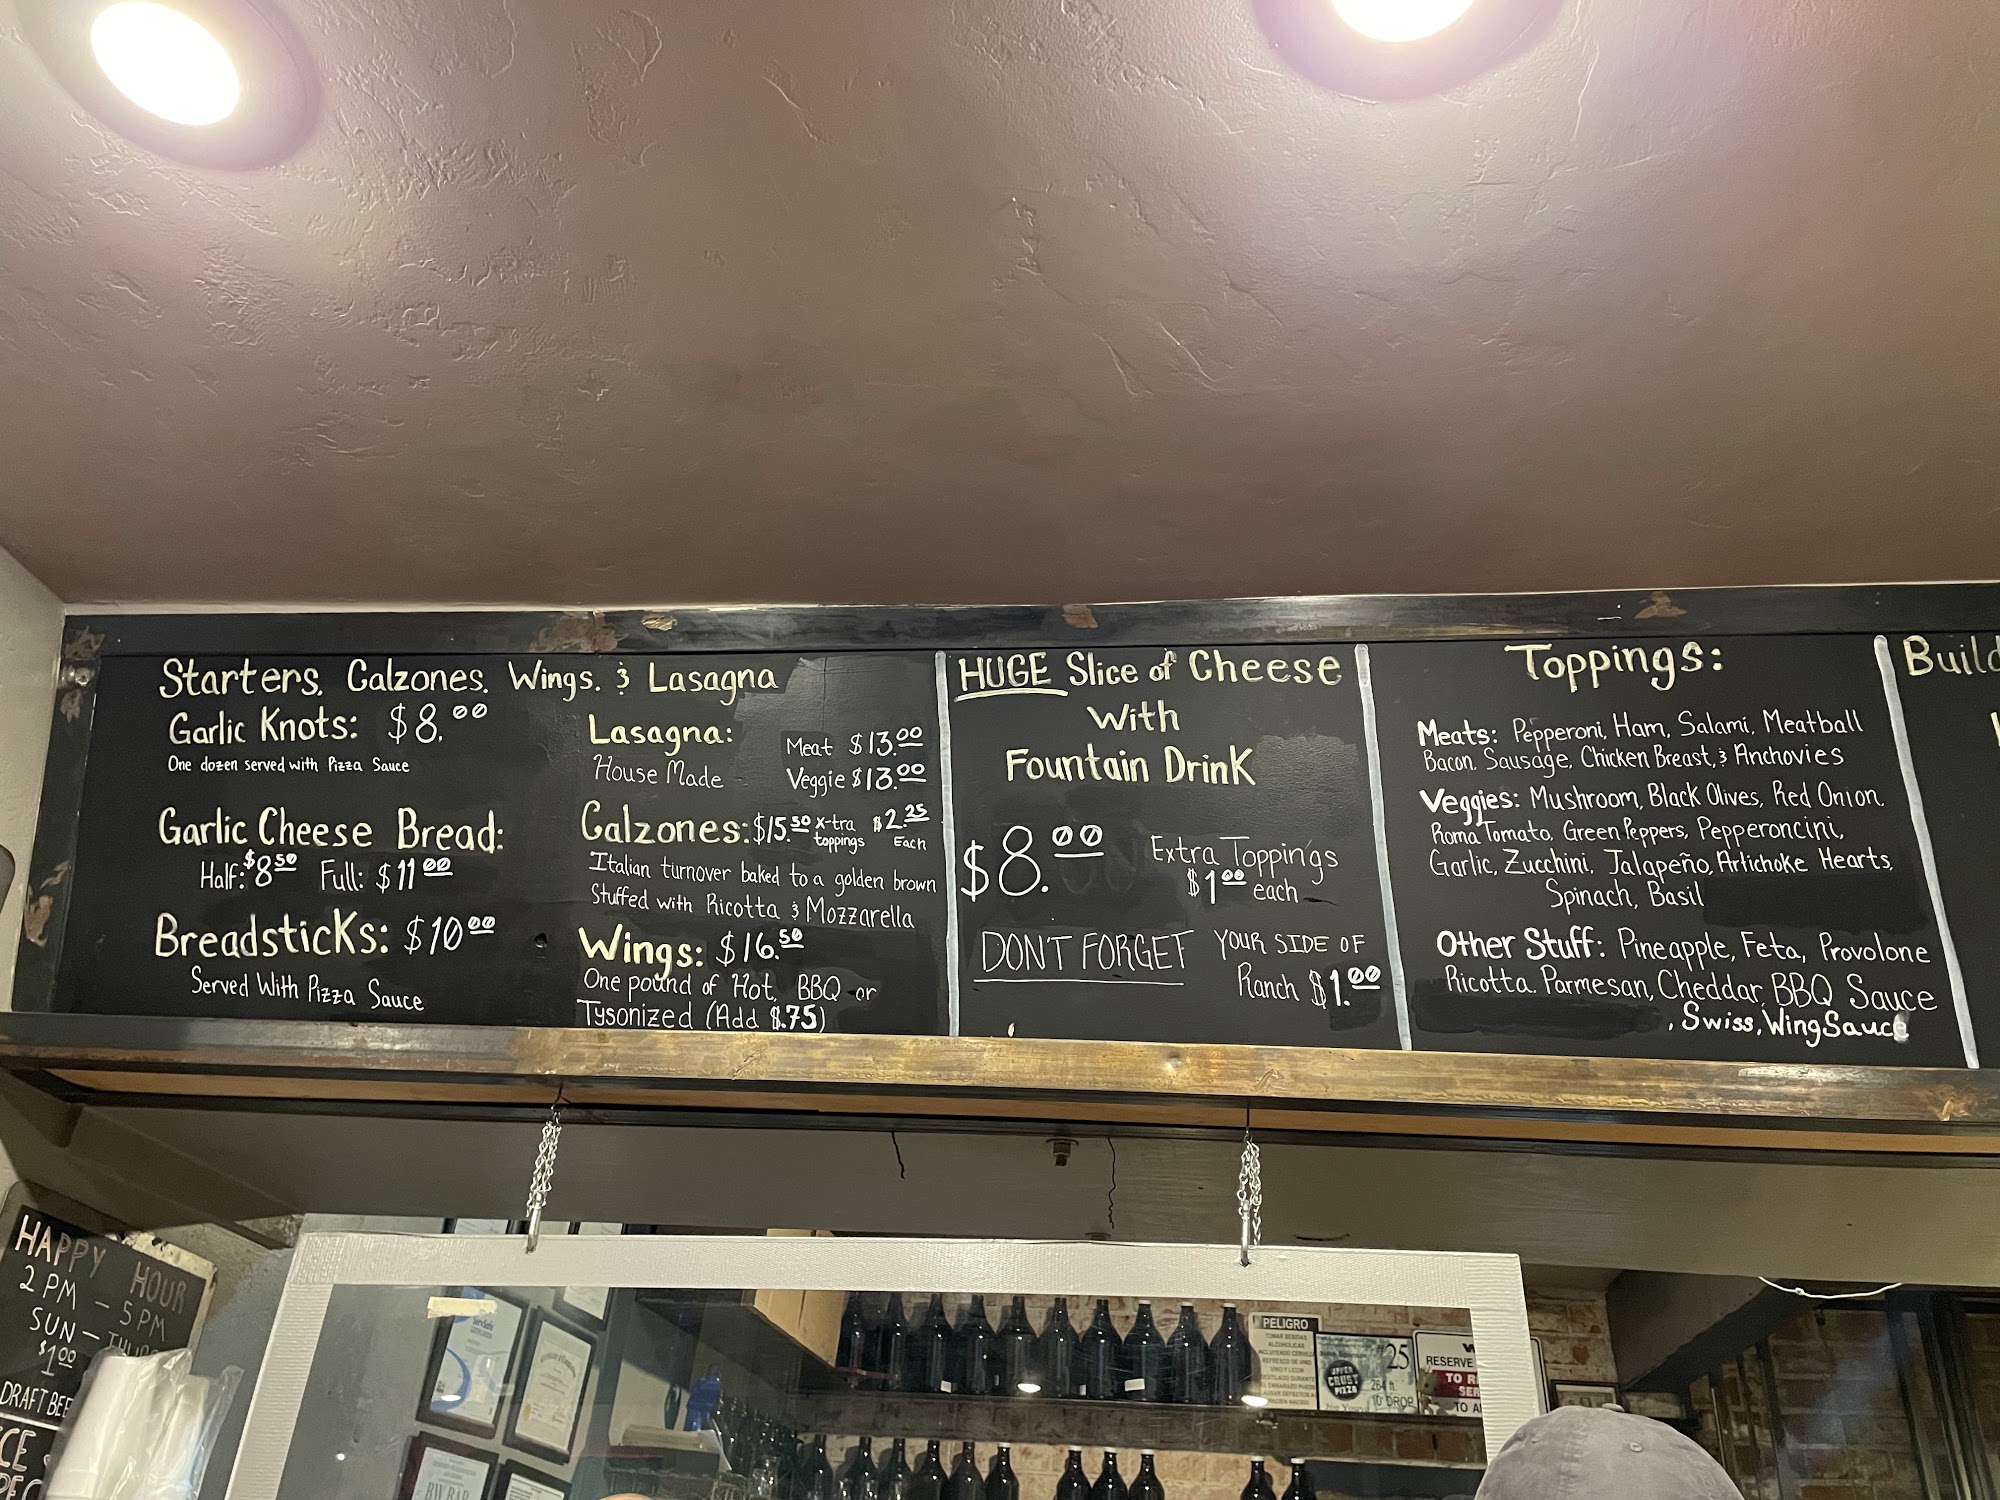 Starters, Calzones, Wings, & Lasagna
Garlic Knots: $8.00
One dozen served with Pizza Sauce
Garlic Cheese Bread:
Half: $8.50 Full: $11.00
Breadsticks: $10.00
Served With Pizza Sauce
Lasagna: Meat $13.00
House Made Veggie $13.00
Calzones: $15.50 x-tra toppings $2.25 Each
Italian turnover baked to a golden brown
Stuffed with Ricotta & Mozzarella
Wings: $16.50
One pound of Hot, BBQ or
Tysonized (Add $.75)
HUGE Slice of Cheese
With
Fountain Drink
$8.00
Extra Toppings
$1.00 each
DON'T FORGET YOUR SIDE OF
Ranch $1.00
Toppings:
Meats: Pepperoni, Ham, Salami, Meatball
Bacon, Sausage, Chicken Breast, & Anchovies
Veggies: Mushroom, Black Olives, Red Onion,
Roma Tomato, Green Peppers, Pepperoncini,
Garlic, Zucchini, Jalapeño, Artichoke Hearts,
Spinach, Basil
Other Stuff: Pineapple, Feta, Provolone
Ricotta, Parmesan, Cheddar, BBQ Sauce
, Swiss, Wing Sauce
Build
HAPPY HOUR
2 PM - 5 PM
SUN - THURS
$1.00
DRAFT BEE
PELIGRO
TOMAR BEBIDAS
ALCOHOLICAS
#25
UPPER
CRUST
PIZZA
264 ft.
10' DROP
RESERVE
TO R
SER
TO A